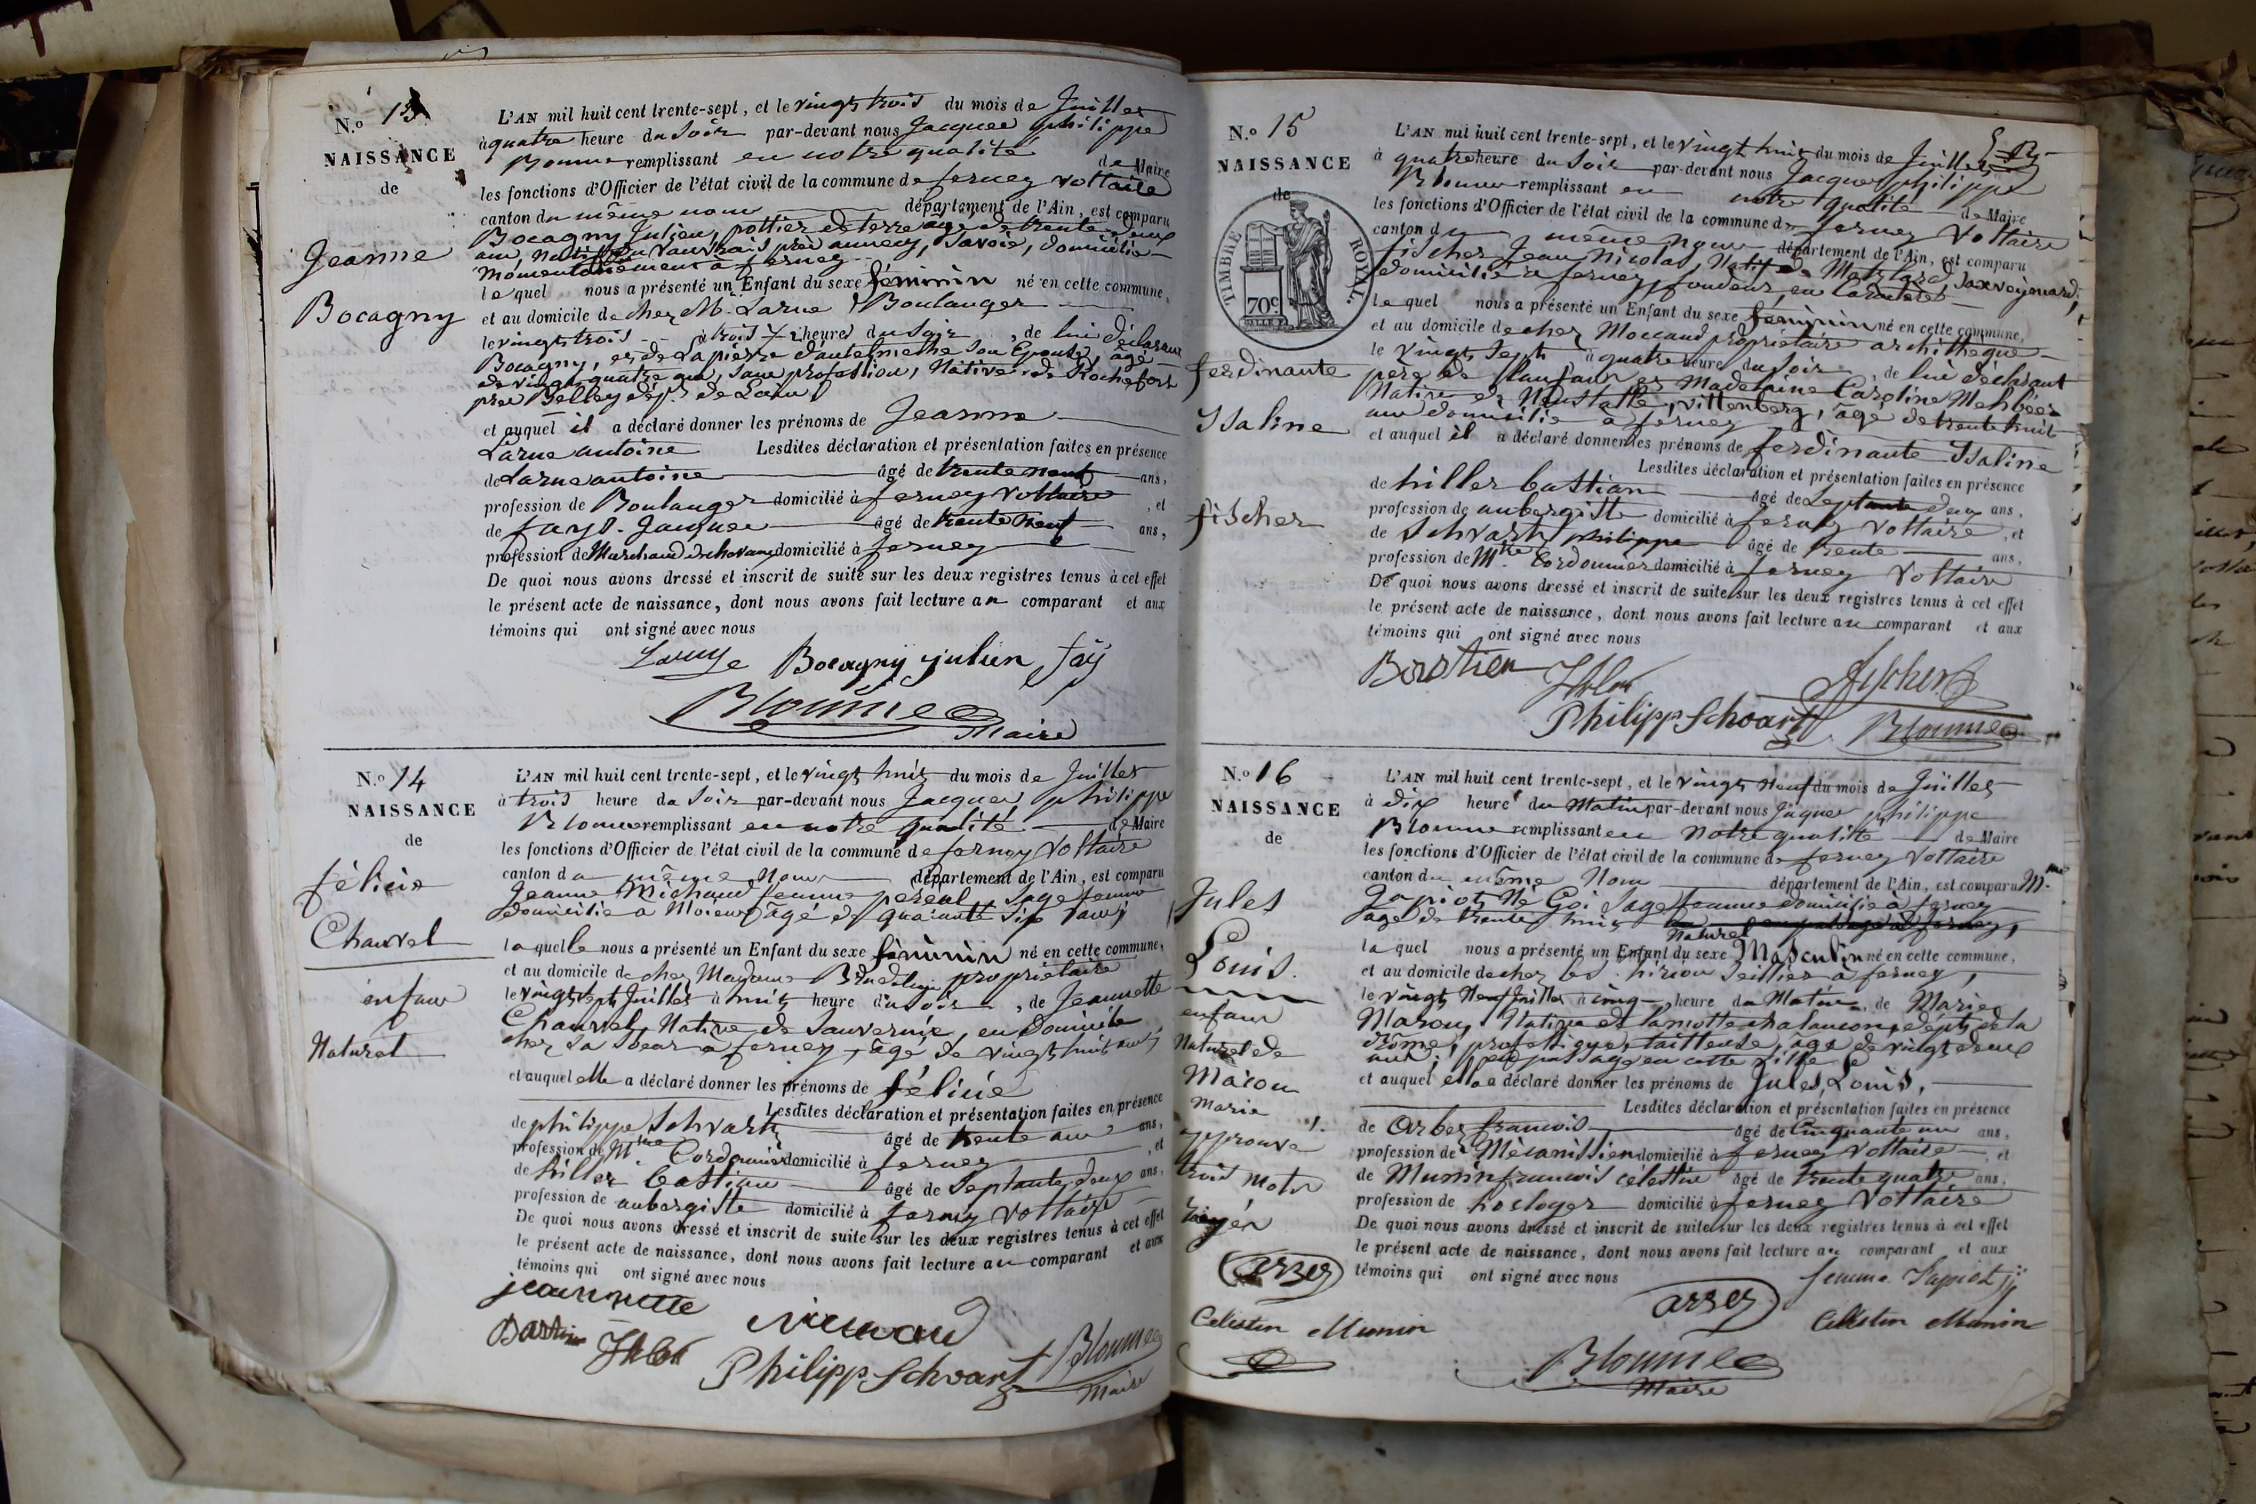 N.o 13
NAISSANCE
de
Jeanne
Bocagny
L'AN mil huit cent trente-sept, et le vingt trois du mois de Juillet
à quatre heure du Soir par-devant nous Jacques philippe
Blonme remplissant en notre qualité de Maire
les fonctions d'Officier de l'état civil de la commune de ferney voltaire
canton du même nom département de l'Ain, est comparu
Bocagny Julien, pottier de terre agé de trente deux
ans, Natif près annecy, Savoie, domicilié
Momentanément à ferney
le quel nous a présenté un Enfant du sexe féminin né en cette commune,
et au domicile de chez M. Larue Boulanger
le vingt trois à trois heure du Soir, de lui déclarant
Bocagny, et de Lapierre son Epouse, âgé
de vingt quatre ans, Sans profession, Native de Rochefort
près Belley dépt. de Lain
et auquel il a déclaré donner les prénoms de Jeanne
Larue antoine Lesdites déclaration et présentation faites en présence
de Larue antoine âgé de trente neuf ans,
profession de Boulanger domicilié à ferney Voltaire, et
de fayd. Jacques âgé de trente neuf ans,
profession de Marchand domicilié à ferney
De quoi nous avons dressé et inscrit de suite sur les deux registres tenus à cet effet
le présent acte de naissance, dont nous avons fait lecture au comparant et aux
témoins qui ont signé avec nous
Bocagny julien faÿ
Blonme
Maire
N.o 14
NAISSANCE
de
félicie
Chauvet
enfant
Naturel
L'AN mil huit cent trente-sept, et le vingt huit du mois de Juillet
à trois heure du Soir par-devant nous Jacques philippe
Blonme remplissant en notre qualité de Maire
les fonctions d'Officier de l'état civil de la commune de ferney Voltaire
canton du même Nom département de l'Ain, est comparu
Jeanne Michaud femme pereal, Sage femme
Domicilié a Moiens âgé de quarante Six ans,
laquelle nous a présenté un Enfant du sexe féminin né en cette commune,
et au domicile de chez Madame propriétaire
le vingt sept Juillet à huit heure du Soir, de Jeannette
Chauvet, Native de Sauvernie, en Domicile
chez sa Soeur a ferney, âgé de vingt huit ans,
et auquel elle a déclaré donner les prénoms de félicie
Lesdites déclaration et présentation faites en présence
de philippe Schvartz âgé de trente ans,
profession de Mtre Cordonnier domicilié à ferney, et
de hiller bastian âgé de Septante deux ans,
profession de aubergiste domicilié à ferney Voltaire
De quoi nous avons dressé et inscrit de suite sur les deux registres tenus à cet effet
le présent acte de naissance, dont nous avons fait lecture au comparant et aux
témoins qui ont signé avec nous
jeannette
Bastien
Philipp Schvartz Blonme
Maire
N.o 15
NAISSANCE
de
TIMBRE ROYAL
70c
ferdinante
Isaline
fischer
L'AN mil huit cent trente-sept, et le vingt huit du mois de Juillet
à quatre heure du Soir par-devant nous Jacques philippe
Blonme remplissant en notre qualité de Maire
les fonctions d'Officier de l'état civil de la commune de ferney Voltaire
canton du même nom département de l'Ain, est comparu
fischer Jean Nicolas, Natif de
domicilié a ferney, fondeur en Caractères
le quel nous a présenté un Enfant du sexe féminin né en cette commune,
et au domicile de chez Moccand propriétaire
le vingt Sept à quatre heure du Soir, de lui déclarant
pere de l'enfant et Madelaine Caroline
Native de Neustatte, vittenberg, âgé de trente huit
ans domicilié a ferney
et auquel il a déclaré donner les prénoms de ferdinante Isaline
Lesdites déclaration et présentation faites en présence
de hiller bastian âgé de Septante deux ans,
profession de aubergiste domicilié à ferney Voltaire, et
de Schvartz philippe âgé de trente ans,
profession de Mtre Cordonnier domicilié à ferney Voltaire
De quoi nous avons dressé et inscrit de suite sur les deux registres tenus à cet effet
le présent acte de naissance, dont nous avons fait lecture au comparant et aux
témoins qui ont signé avec nous
Bastien
fischer
Philipp Schvartz Blonme
N.o 16
NAISSANCE
de
Jules
Louis.
enfant
Naturel de
Macon
Marie
approuvé
trois mots
rayés
Celestin Munin
L'AN mil huit cent trente-sept, et le vingt Neuf du mois de Juillet
à dix heure du Matin par-devant nous Jaques philippe
Blonme remplissant en notre qualité de Maire
les fonctions d'Officier de l'état civil de la commune de ferney Voltaire
canton du même Nom département de l'Ain, est comparu Mme
Japiot Né Goi Sage femme domicilié à ferney
age de trente huit
Naturel
la quel nous a présenté un Enfant du sexe Masculin né en cette commune,
et au domicile de chez a ferney,
le vingt Neuf Juillet à cinq heure du Matin, de Marie
Macon, Native de lamotte chalancon, dépt. de la
drôme, profession tailleuse, agé de vingt deux
ans, en passage en cette ville
et auquel elle a déclaré donner les prénoms de Jules, Louis,
Lesdites déclaration et présentation faites en présence
de francois âgé de Cinquante un ans,
profession de Mécanissien domicilié à ferney Voltaire, et
de Munin francois célestin âgé de trente quatre ans,
profession de horloger domicilié à ferney Voltaire
De quoi nous avons dressé et inscrit de suite sur les deux registres tenus à cet effet
le présent acte de naissance, dont nous avons fait lecture au comparant et aux
témoins qui ont signé avec nous
femme Japiot
Celestin Munin
Blonme
Maire